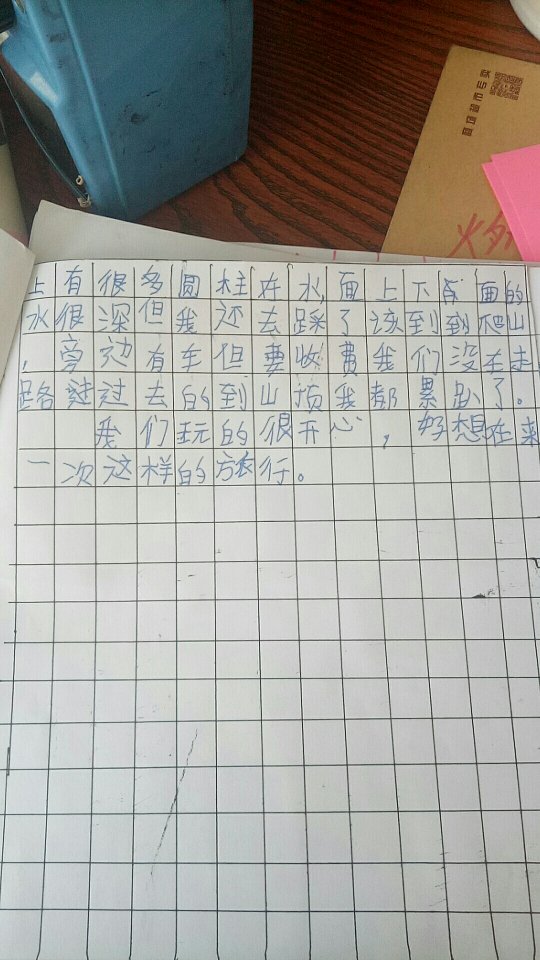 直鸡蛋市专致
火红
上有很多圆柱在水面上下底面的
水很深但我还去踩了该到到爬山
,旁边有车但要收费我们没有走
路爬过去的到山顶我都累趴了。
我们玩的很开心,好想在来
一次这样的旅行。